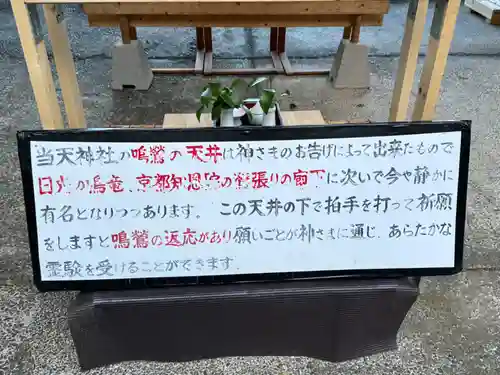 当天神社の鳴鶯の天井は神さまのお告げによって出来たもので
日光の鳴竜、京都知恩院の鶯張りの廊下に次いで今や静かに
有名となりつつあります。 この天井の下で拍手を打って祈願
をしますと鳴鶯の返応があり願いごとが神さまに通じ、あらたかな
霊験を受けることができます。